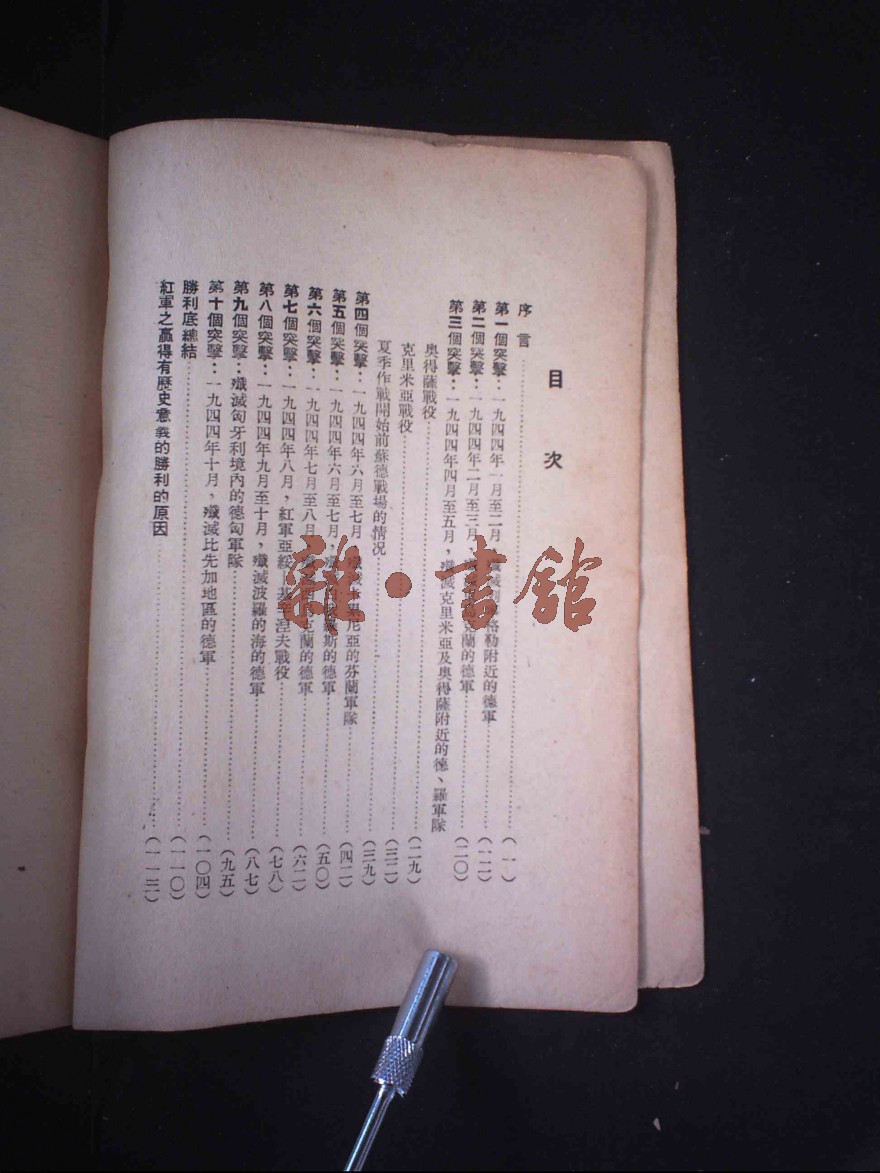 目次
序言……(一)
第一個突擊：一九四四年一月至二月，殲滅列 格勒附近的德軍……(一二)
第二個突擊：一九四四年二月至三月， 克蘭的德軍……(二〇)
第三個突擊：一九四四年四月至五月，殲滅克里米亞及奧得薩附近的德、羅軍隊
奧得薩戰役……(二九)
克里米亞戰役……(三二)
夏季作戰開始前蘇德戰場的情况……(三九)
第四個突擊：一九四四年六月至七月，殲滅 尼亞的芬蘭軍隊……(四二)
第五個突擊：一九四四年六月至七月，殲 斯的德軍……(五〇)
第六個突擊：一九四四年七月至八月，殲 克蘭的德軍……(六二)
第七個突擊：一九四四年八月，紅軍亞綏— 涅夫戰役……(七八)
第八個突擊：一九四四年九月至十月，殲滅波羅的海的德軍……(八七)
第九個突擊：殲滅匈牙利境內的德匈軍隊……(九五)
第十個突擊：一九四四年十月，殲滅比先加地區的德軍……(一〇四)
勝利底總結……(一一〇)
紅軍之贏得有歷史意義的勝利的原因……(一一三)
雜·書館